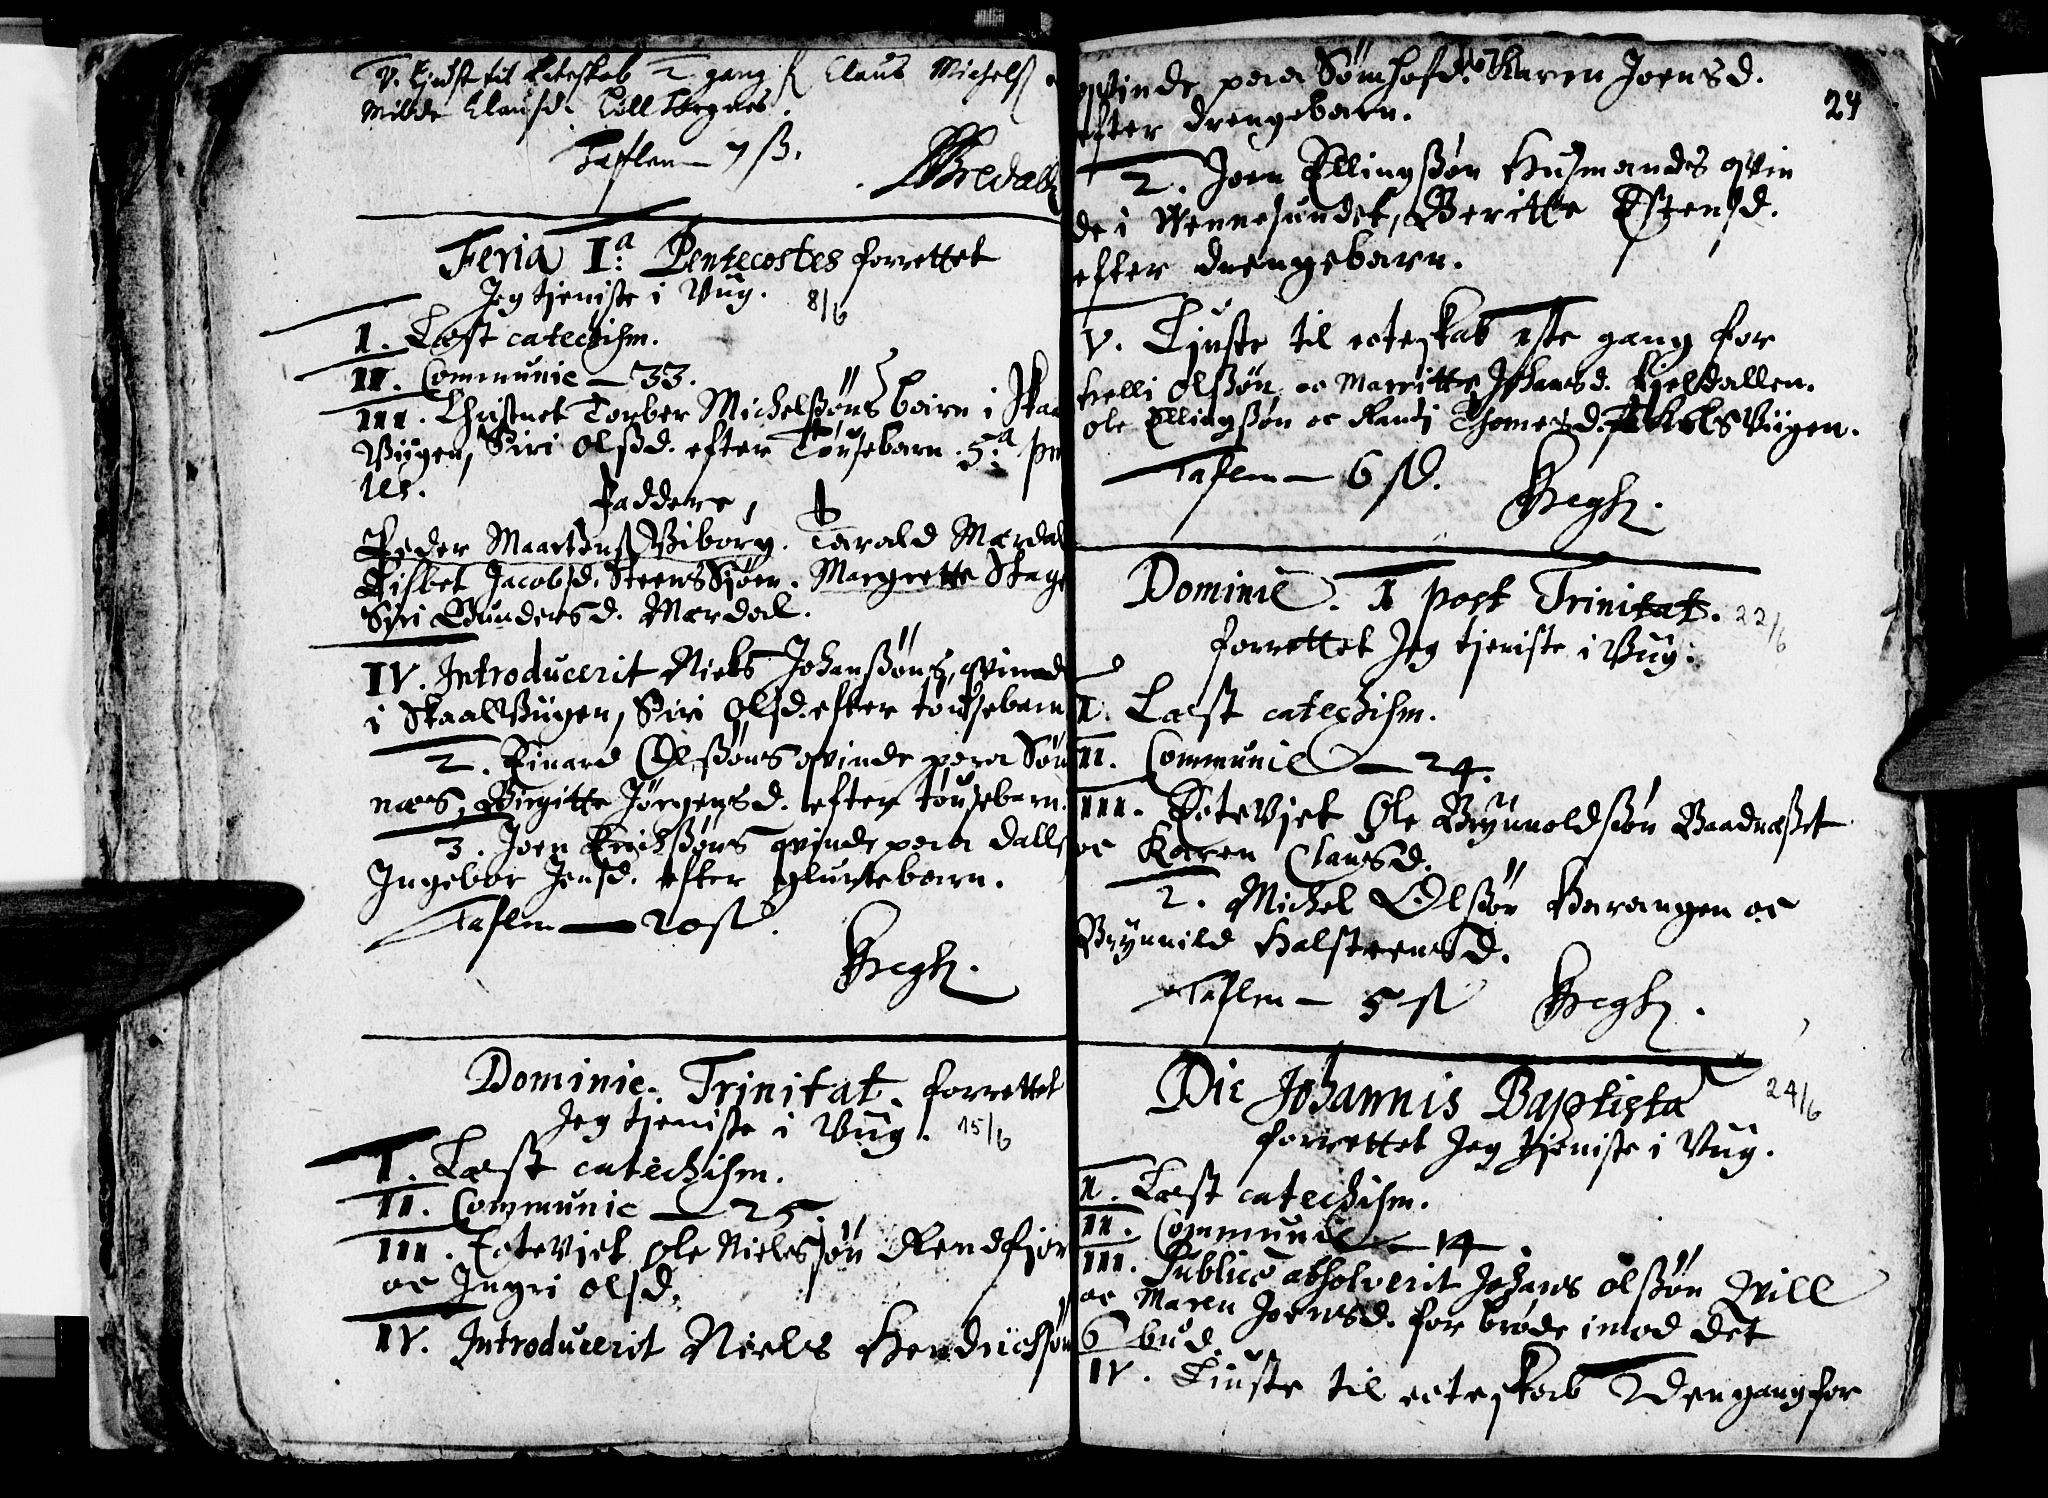 V. liust til Ecteskab 2 gang f Claus Michelß
Milde Clausd.
Taflen — 7 ß.
Feria I.a Pentecostes forrettet
Jeg tjeniste i Vug. 8/6
I. Læst catechism.
II. Communic — 33.
III. Christnet Torber Michelßøns barn i Skaa
Vugen, Siri Olßd. efter Tøusebarn. 5.a
Faddere,
Peder Viborg. Tarald Mærdal
Lisbet Jacobsd. Margrette
Siri Gundersd. Mærdal.
IV. Introducerit Niels Johanßøns qvinde
i Skaalvugen, Siri Olsd. efter tøusebarn
2. Einard Olßøns qvinde paa Søm
næs, Birgitte Jørgensd. efter tøusebarn.
3. Joen Erichßøns qvinde paa dalls
Ingebor Jensd. efter gluntebarn.
Taflen — 20 ß.
Dominic. Trinitat. forrettet
Jeg tjeniste i Vug. 15/6
I. Læst catechism.
II. Communic — 25.
III. Ecteviet Ole Nielsøn Rendfjor
oc Ingri Olsd.
IV. Introducerit Niels Hendrichsøn
24
qvinde paa Sømhofd. Karen Joensd.
efter drengebarn.
2. Joen Ellingßøn Husmands qvin
de i Wennesundet, Beritte Estensd.
efter drengebarn.
V. Liuste til ecteskab 1ste gang for
Kielli Olßøn oc Marritte Johansd. Kieldallen.
Ole Ellingßøn oc Randi Thomesd. Vugen.
Taflen — 6 ß.
Dominic. I post Trinitat. 22/6
forrettet Jeg tjeniste i Vug.
I. Læst catechism.
II. Communic — 24.
III. Ecteviet Ole Brynnoldßøn Baadnæßet
oc Karen Clausd.
2. Michel Olßøn Varangen oc
Brynnild Halsteensd.
Taflen — 5 ß
Die Johannis Baptista 24/6
forrettet Jeg tjeniste i Vug.
I. Læst catechism.
II. Communic — 14.
III. Publicè absolverit Johans Olßøn
oc Maren Joensd. for brøde imod det
6 bud.
IV. Liuste til ecteskab 2den gang for